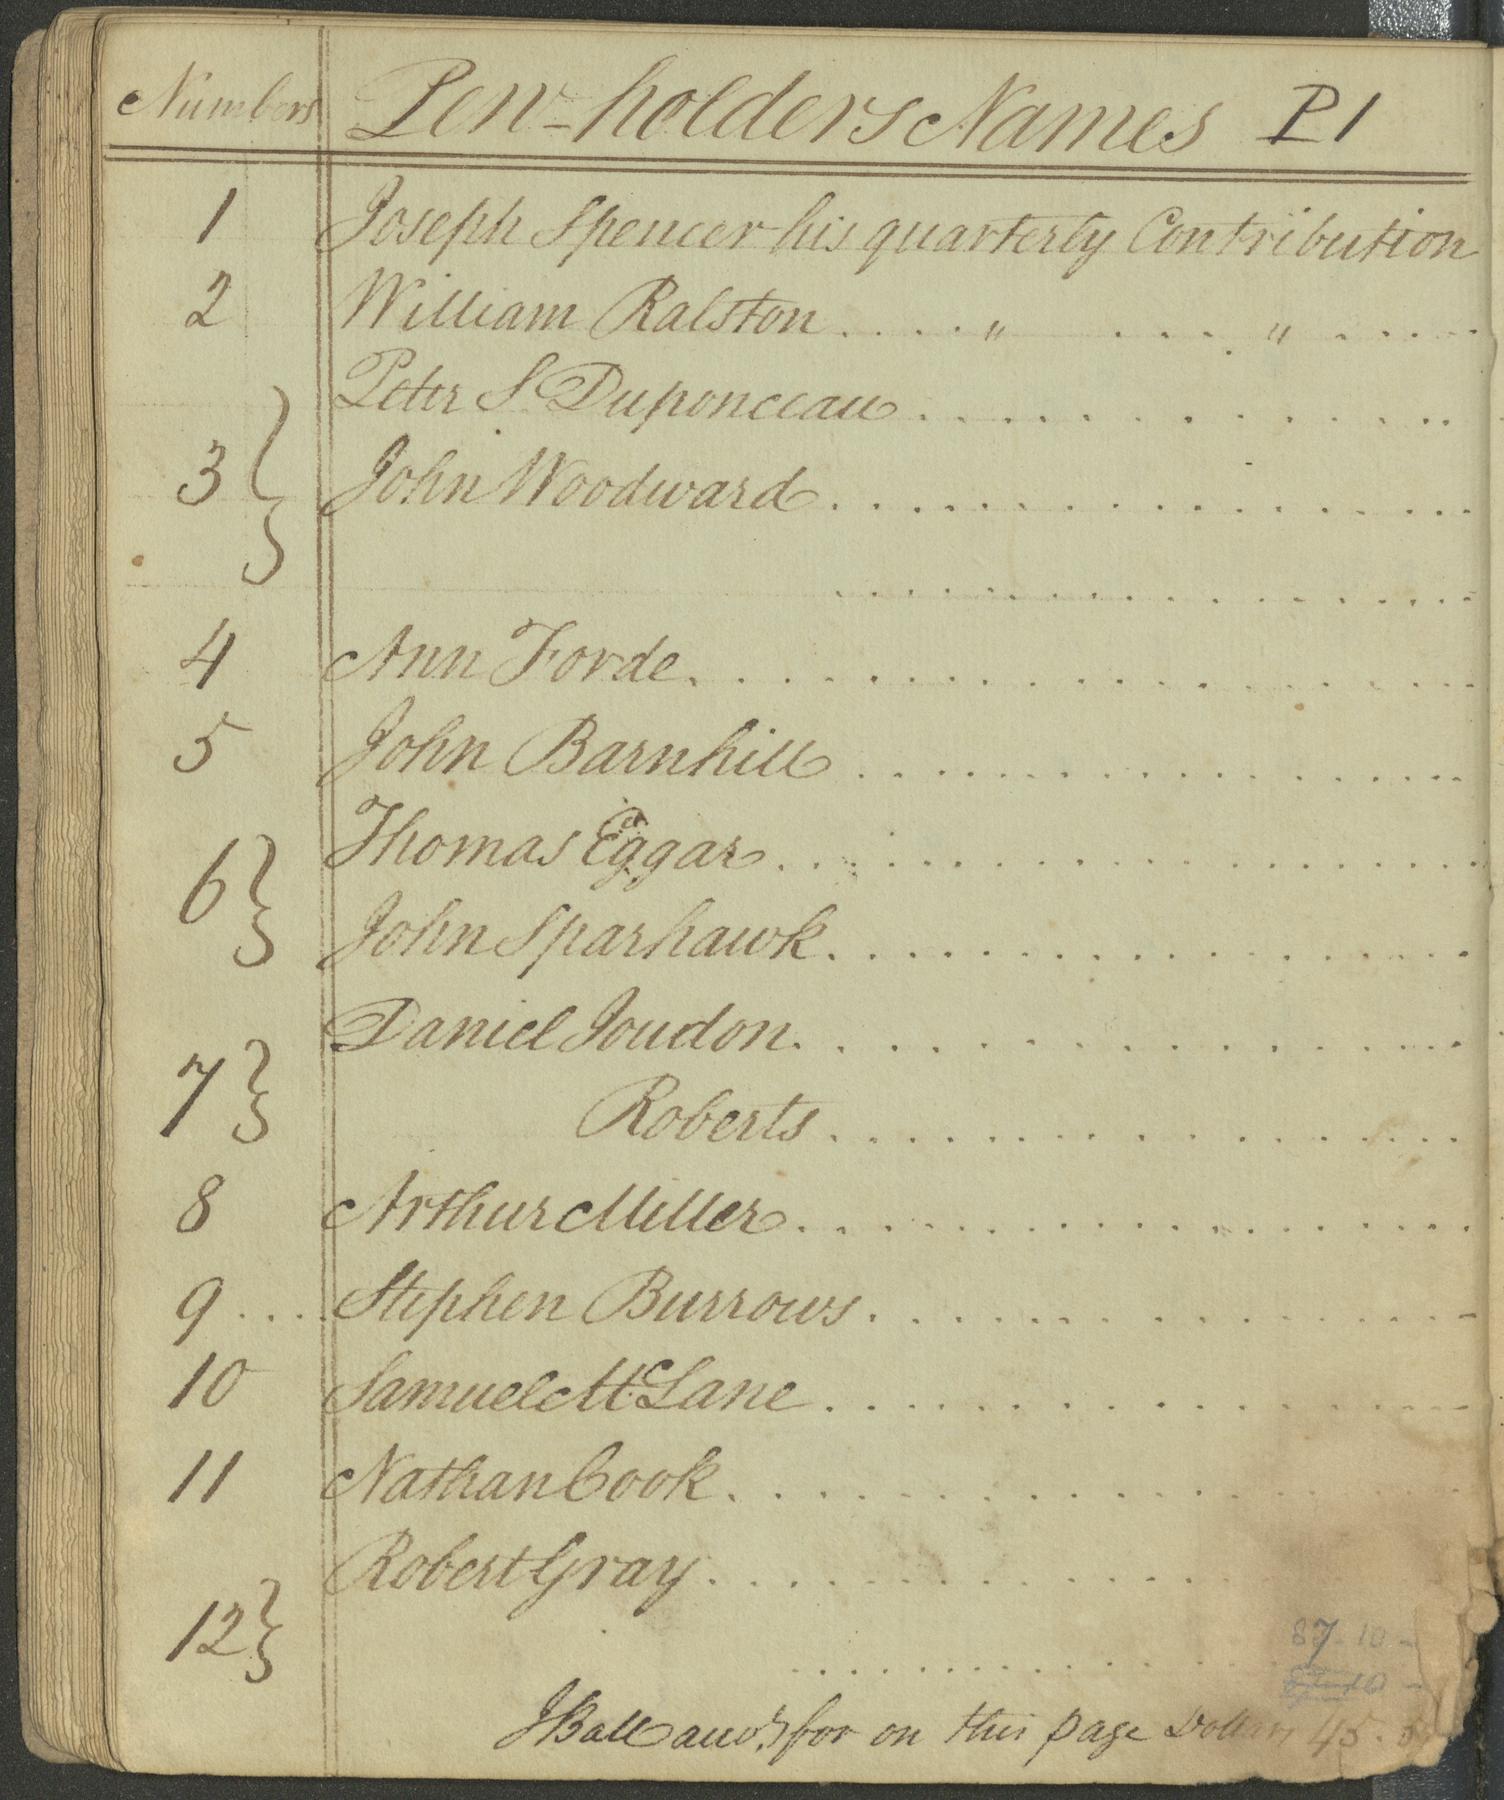 Numbers Pew-holders Names P1
1 Joseph Spencer his quarterly Contribution
2 William Ralston .... " .... " .....
Peter S. Duponceau
3 } John Woodward
4 Ann Forde
5 John Barnhill
Thomas Eggar
6 } John Sparhawk
Daniel Joudon
7 } Roberts
8 Arthur Miller
9 ... Stephen Burrows
10 Samuel McLane
11 Nathan Cook
Robert Gray
12 }
87-10-
J Ball for on this page Dollars 45.